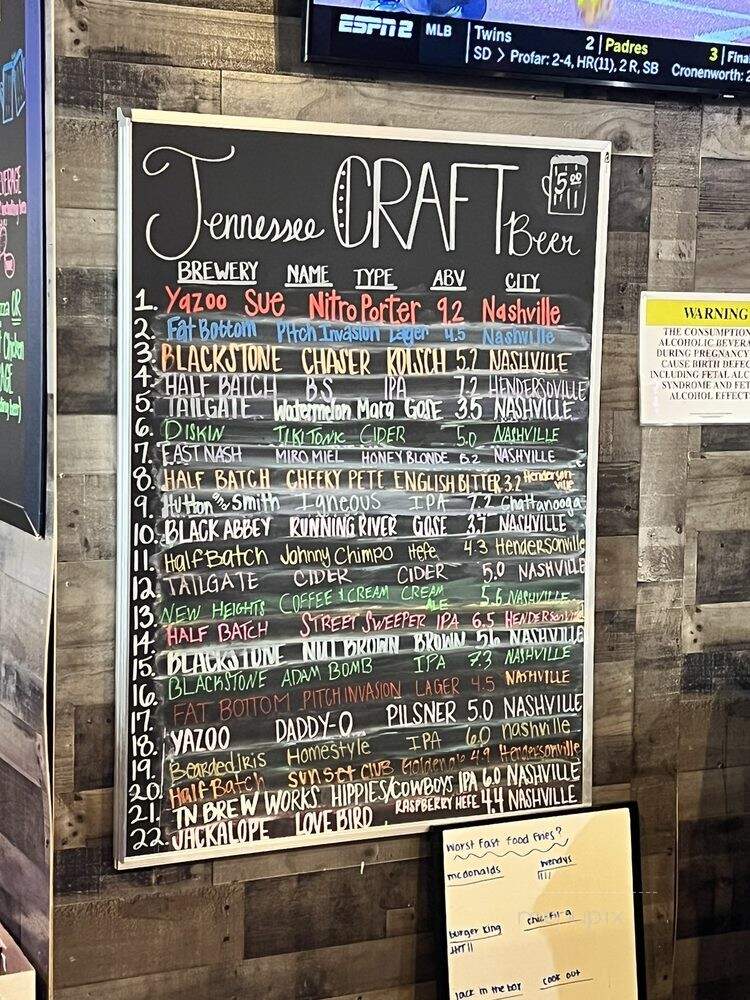 ESPN2 MLB Twins 2 Padres 3 Final
SD > Profar: 2-4, HR(11), 2 R, SB Cronenworth: 2
Tennessee CRAFT Beer
5.00
BREWERY NAME TYPE ABV CITY
1. Yazoo Sue Nitro Porter 9.2 Nashville
2. Fat Bottom Pitch Invasion Lager 4.5 Nashville
3. BLACKSTONE CHASER KOLSCH 5.2 NASHVILLE
4. HALF BATCH B.S IPA 7.2 HENDERSOVILLE
5. TAILGATE Watermelon Marg GOSE 3.5 NASHVILLE
6. DISKIN TIKI TONIC CIDER 5.0 NASHVILLE
7. EAST NASH MIRO MIEL HONEY BLONDE 6.2 NASHVILLE
8. HALF BATCH CHEEKY PETE ENGLISH BITTER 3.7 Hendersonville
9. Hutton and Smith Igneous IPA 7.2 Chattanooga
10. BLACK ABBEY RUNNING RIVER GOSE 3.7 NASHVILLE
11. Half Batch Johnny Chimpo Hefe 4.3 Hendersonville
12. TAILGATE CIDER CIDER 5.0 NASHVILLE
13. NEW HEIGHTS COFFEE & CREAM CREAM ALE 5.6 NASHVILLE
14. HALF BATCH STREET SWEEPER IPA 6.5 HENDERSONVILLE
15. BLACKSTONE NUT BROWN BROWN 5.6 NASHVILLE
16. BLACKSTONE ADAM BOMB IPA 7.3 NASHVILLE
17. FAT BOTTOM PITCH INVASION LAGER 4.5 NASHVILLE
18. YAZOO DADDY-O PILSNER 5.0 NASHVILLE
19. Bearded Iris Homestyle IPA 6.0 nashville
20. Half Batch sunset club Goldenale 4.9 Hendersonville
21. TN BREW WORKS HIPPIES/COWBOYS IPA 6.0 NASHVILLE
22. JACKALOPE LOVE BIRD RASPBERRY HEFE 4.4 NASHVILLE
WARNING
THE CONSUMPTION
ALCOHOLIC BEVERA
DURING PREGNANCY
CAUSE BIRTH DEFEC
INCLUDING FETAL ALC
SYNDROME AND FET
ALCOHOL EFFECT
worst Fast food fries?
mcdonalds wendys
burger king chic-fil-a
Jack in the box cook out